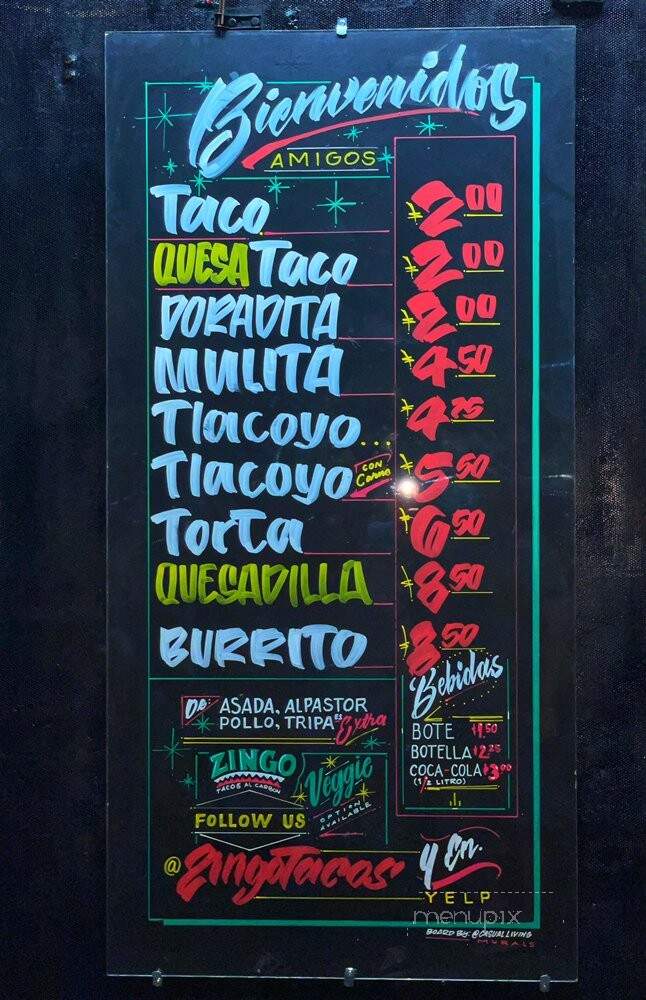 Bienvenidos
AMIGOS
Taco $2.00
QUESA Taco $2.00
DORADITA $2.00
MULITA $4.50
Tlacoyo... $4.75
Tlacoyo CON Carne $5.50
TorTa $6.50
QUESADILLA $8.50
BURRITO $8.50
DE: ASADA, ALPASTOR
POLLO, TRIPA ES Extra
Bebidas
BOTE $1.50
BOTELLA $2.25
COCA-COLA $3.00
(1/2 LITRO)
ZINGO
TACOS AL CARBON
Veggie
OPTION
AVAILABLE
FOLLOW US
@ZingoTacos
y En.
YELP
menupix
BOARD BY: @CASUALLIVING
MURALS